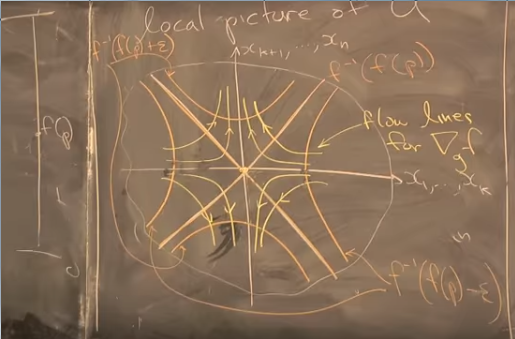 local picture at U
f⁻¹(f(p)+ε)
x_{k+1}, ..., x_n
f⁻¹(f(p))
f(p)
flow lines
for ∇_g f
x_1, ..., x_k
f⁻¹(f(p)-ε)